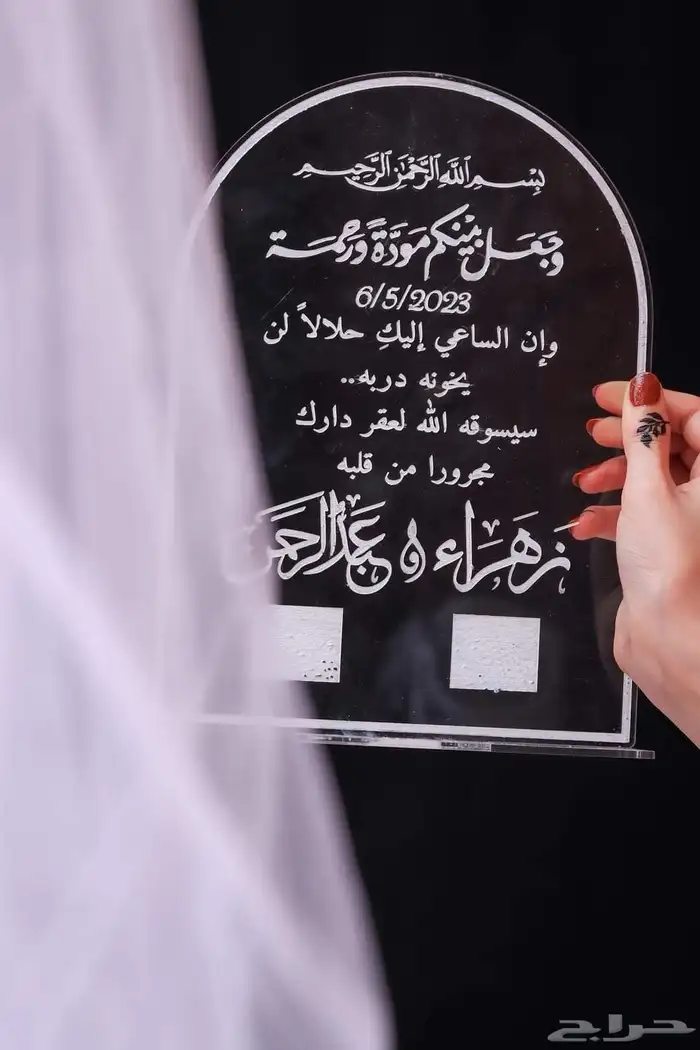 بِسْمِ اللَّهِ الرَّحْمَٰنِ الرَّحِيمِ
وَجَعَلَ بَيْنَكُم مَوَدَّةً وَرَحْمَة
6/5/2023
وإن الساعي إليكِ حلالاً لن
يخونه دربه..
سيسوقه الله لعقر دارك
مجرورا من قلبه
زَهَرَاء و عَبدُالرحمن
حراج